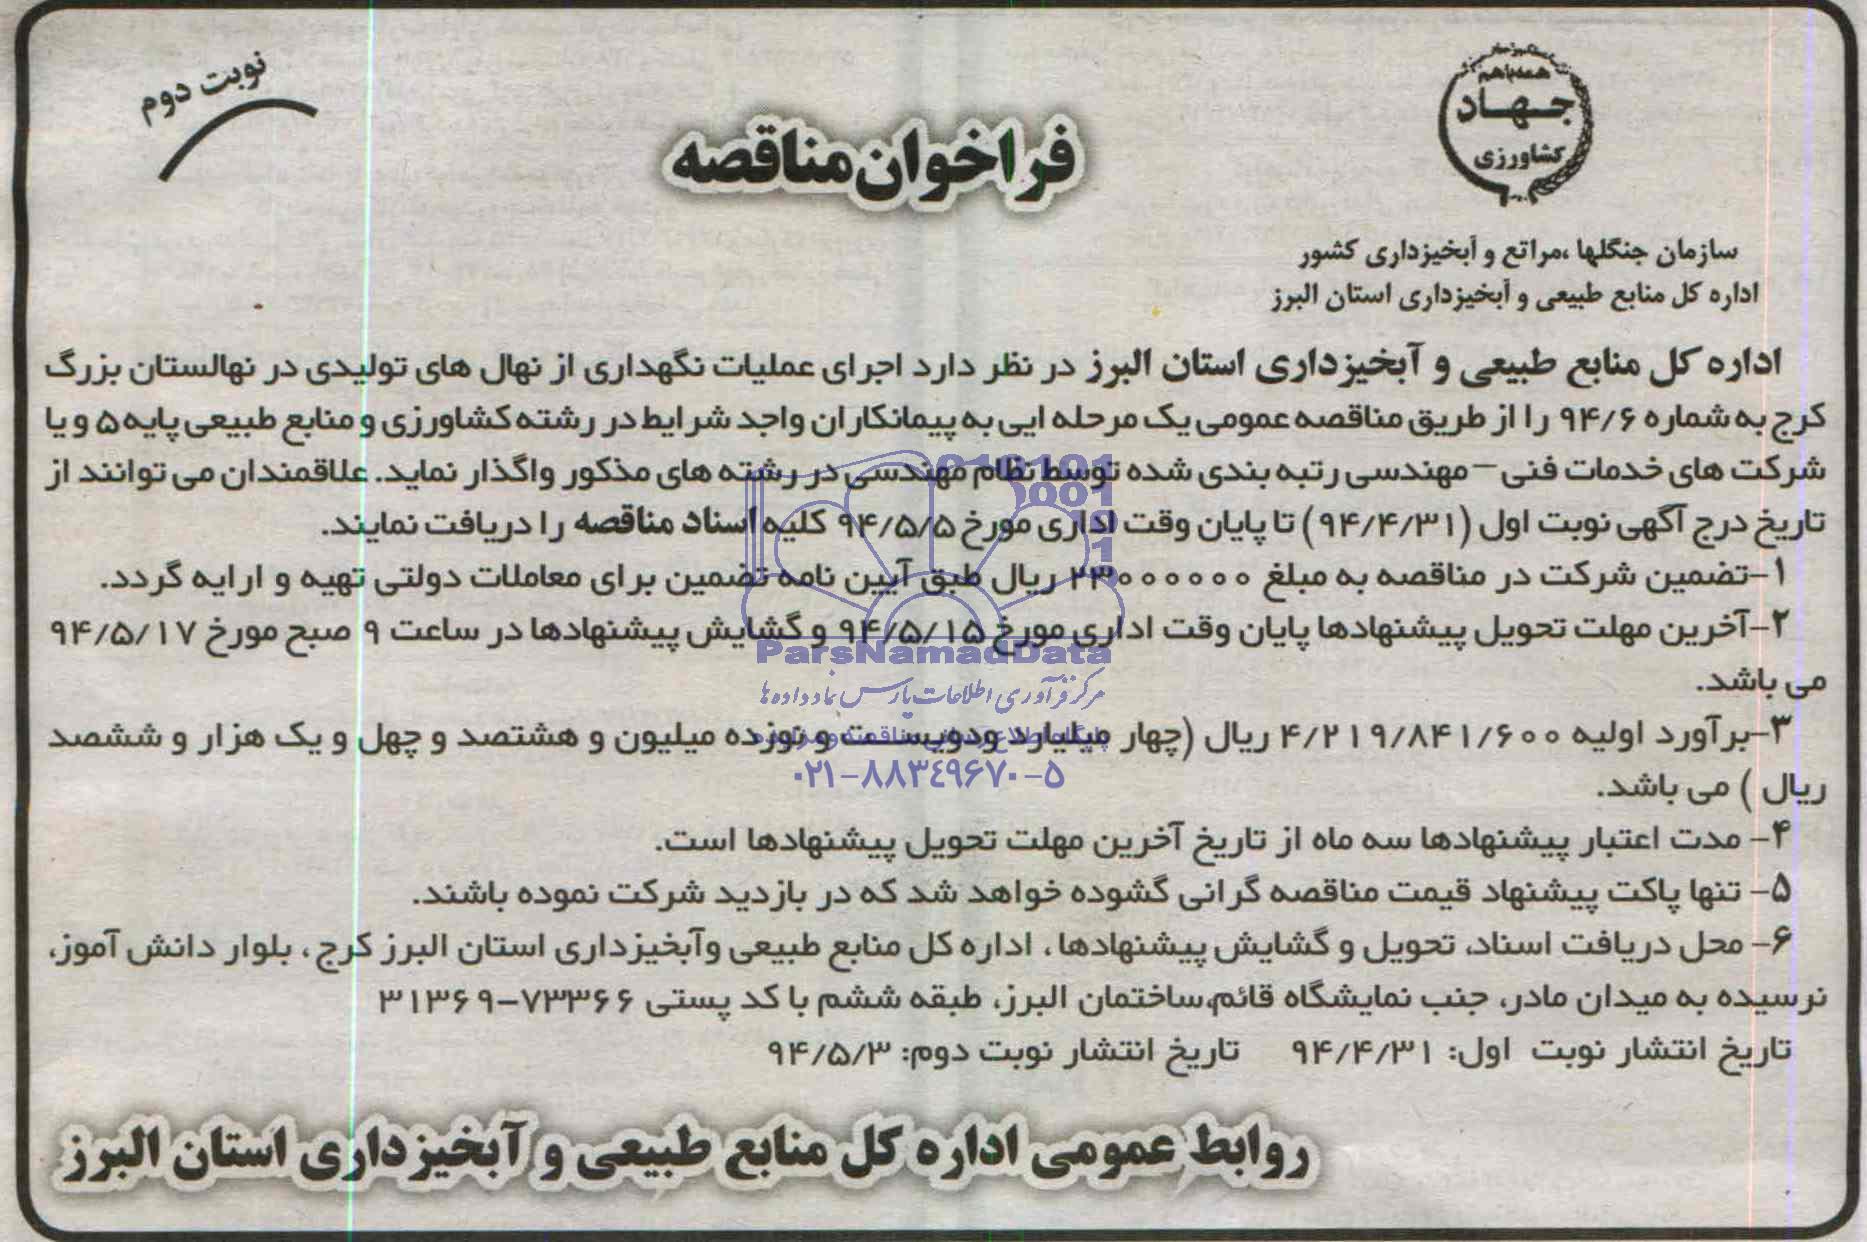 نوبت دوم
همه باهم
جهاد
کشاورزی
فراخوان مناقصه
سازمان جنگلها ،مراتع و آبخیزداری کشور
اداره کل منابع طبیعی و آبخیزداری استان البرز
اداره کل منابع طبیعی و آبخیزداری استان البرز در نظر دارد اجرای عملیات نگهداری از نهال های تولیدی در نهالستان بزرگ
کرج به شماره ۹۴/۶ را از طریق مناقصه عمومی یک مرحله ایی به پیمانکاران واجد شرایط در رشته کشاورزی و منابع طبیعی پایه ۵ و یا
شرکت های خدمات فنی – مهندسی رتبه بندی شده توسط نظام مهندسی در رشته های مذکور واگذار نماید. علاقمندان می توانند از
تاریخ درج آگهی نوبت اول (۹۴/۴/۳۱) تا پایان وقت اداری مورخ ۹۴/۵/۵ کلیه اسناد مناقصه را دریافت نمایند.
۱-تضمین شرکت در مناقصه به مبلغ ۲۳۰۰۰۰۰۰۰ ریال طبق آیین نامه تضمین برای معاملات دولتی تهیه و ارایه گردد.
۲-آخرین مهلت تحویل پیشنهادها پایان وقت اداری مورخ ۹۴/۵/۱۵ و گشایش پیشنهادها در ساعت ۹ صبح مورخ ۹۴/۵/۱۷
می باشد.
۳-برآورد اولیه ۴/۲۱۹/۸۴۱/۶۰۰ ریال (چهار میلیارد ودویست و نوزده میلیون و هشتصد و چهل و یک هزار و ششصد
ریال ) می باشد.
۴- مدت اعتبار پیشنهادها سه ماه از تاریخ آخرین مهلت تحویل پیشنهادها است.
۵- تنها پاکت پیشنهاد قیمت مناقصه گرانی گشوده خواهد شد که در بازدید شرکت نموده باشند.
۶- محل دریافت اسناد، تحویل و گشایش پیشنهادها ، اداره کل منابع طبیعی وآبخیزداری استان البرز کرج ، بلوار دانش آموز،
نرسیده به میدان مادر، جنب نمایشگاه قائم،ساختمان البرز، طبقه ششم با کد پستی ۷۳۳۶۶-۳۱۳۶۹
تاریخ انتشار نوبت اول: ۹۴/۴/۳۱ تاریخ انتشار نوبت دوم: ۹۴/۵/۳
روابط عمومی اداره کل منابع طبیعی و آبخیزداری استان البرز
ParsNamadData
مرکز فرآوری اطلاعات پارس نماد داده ها
۰۲۱-۸۸۳۴۹۶۷۰-۵